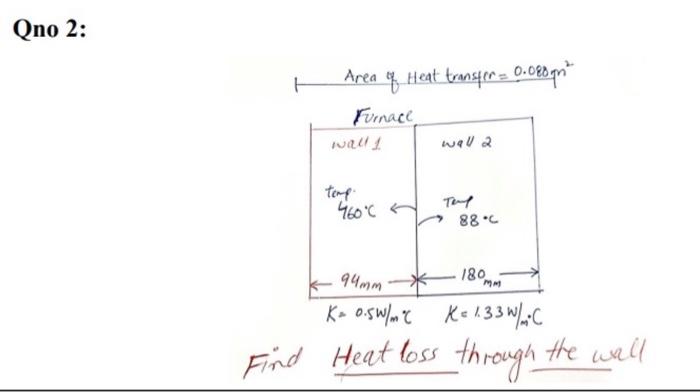 Qno 2:
Area of Heat transfer = 0.080m²
Furnace
wall 1 wall 2
temp. 460°C Temp 88°C
94mm 180mm
K= 0.5W/m°C K= 1.33W/m°C
Find Heat loss through the wall